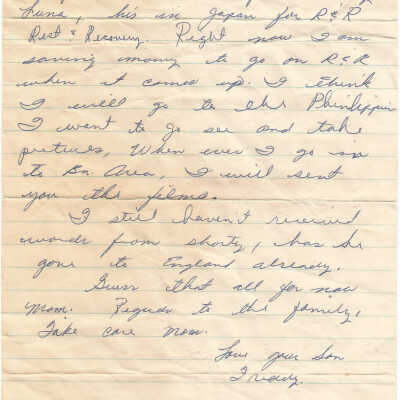 Luna, his in Japan for R & R
Rest & Recovery. Right now I am
saving money to go on R & R
when it comes up. I think
I will go to the Phinlippin
I want to go see and take
pictures, When ever I go in
to Ba. Area, I will sent
you the films.
I still haven't received
words from shorty, has he
gone to England already.
Guess that all for now
Mom. Reguds to the family,
Take care Mom.
Love your Son
Freddy.